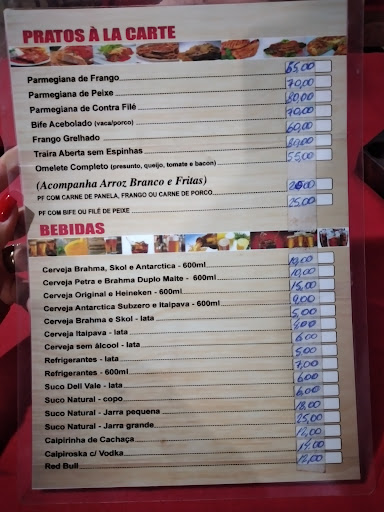 PRATOS À LA CARTE
Parmegiana de Frango 65,00
Parmegiana de Peixe 70,00
Parmegiana de Contra Filé 80,00
Bife Acebolado (vaca/porco) 70,00
Frango Grelhado 60,00
Traira Aberta sem Espinhas 80,00
Omelete Completo (presunto, queijo, tomate e bacon) 55,00
(Acompanha Arroz Branco e Fritas)
PF COM CARNE DE PANELA, FRANGO OU CARNE DE PORCO 20,00
PF COM BIFE OU FILÉ DE PEIXE 25,00
BEBIDAS
Cerveja Brahma, Skol e Antarctica - 600ml 10,00
Cerveja Petra e Brahma Duplo Malte - 600ml 10,00
Cerveja Original e Heineken - 600ml 15,00
Cerveja Antarctica Subzero e Itaipava - 600ml 9,00
Cerveja Brahma e Skol - lata 5,00
Cerveja Itaipava - lata
Cerveja sem álcool - lata 6,00
Refrigerantes - lata 5,00
Refrigerantes - 600ml 7,00
Suco Dell Vale - lata 6,00
Suco Natural - copo 6,00
Suco Natural - Jarra pequena 18,00
Suco Natural - Jarra grande 25,00
Caipirinha de Cachaça 12,00
Caipiroska c/ Vodka 14,00
Red Bull 12,00